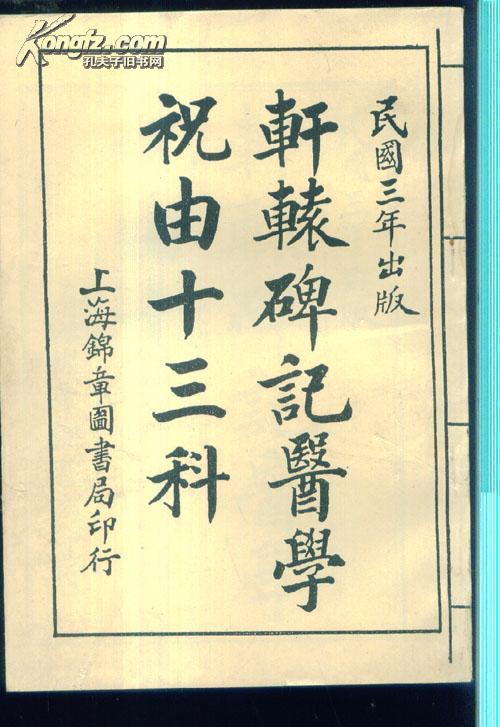 Kongfz.com
孔夫子旧书网
民國三年出版
軒轅碑記醫學
祝由十三科
上海錦章圖書局印行